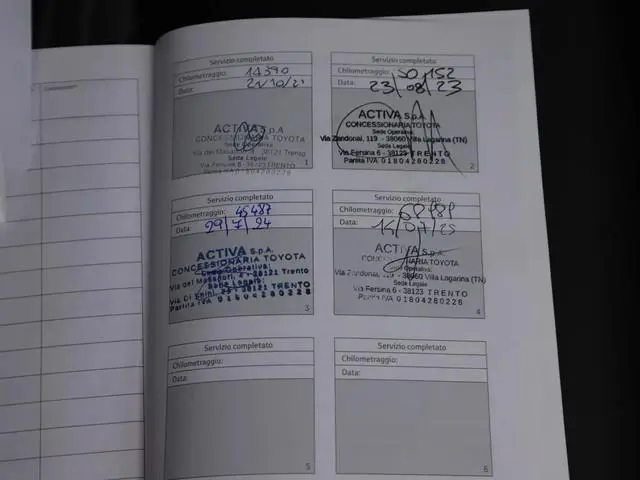 Servizio completato
Chilometraggio: 14390
Data: 21/10/21
ACTIVA S.p.A
CONCESSIONARIA TOYOTA
Sede Operativa:
Via dei Masadori 28121 Trento
Sede Legale
Via Fersina 6 - 38123 TRENTO
Partita IVA 01804280228
1
Servizio completato
Chilometraggio: 30.152
Data: 23/08/23
ACTIVA S.p.A.
CONCESSIONARIA TOYOTA
Sede Operativa:
Via Zandonai, 119 - 38060 Villa Lagarina (TN)
Sede Legale
Via Fersina 6 - 38123 TRENTO
Partita IVA 01804280228
2
Servizio completato
Chilometraggio: 45487
Data: 29/7/24
ACTIVA S.p.A.
CONCESSIONARIA TOYOTA
Sede Operativa:
38121 Trento
Sede Legale:
38121 TRENTO
Partita IVA 01804280228
3
Servizio completato
Chilometraggio:
Data: 14/07/25
ACTIVA S.p.A.
CONCESSIONARIA TOYOTA
Sede Operativa:
Via Zandonai, 119 - 38060 Villa Lagarina (TN)
Sede Legale
Via Fersina 6 - 38123 TRENTO
Partita IVA 01804280228
4
Servizio completato
Chilometraggio:
Data:
5
Servizio completato
Chilometraggio:
Data:
6